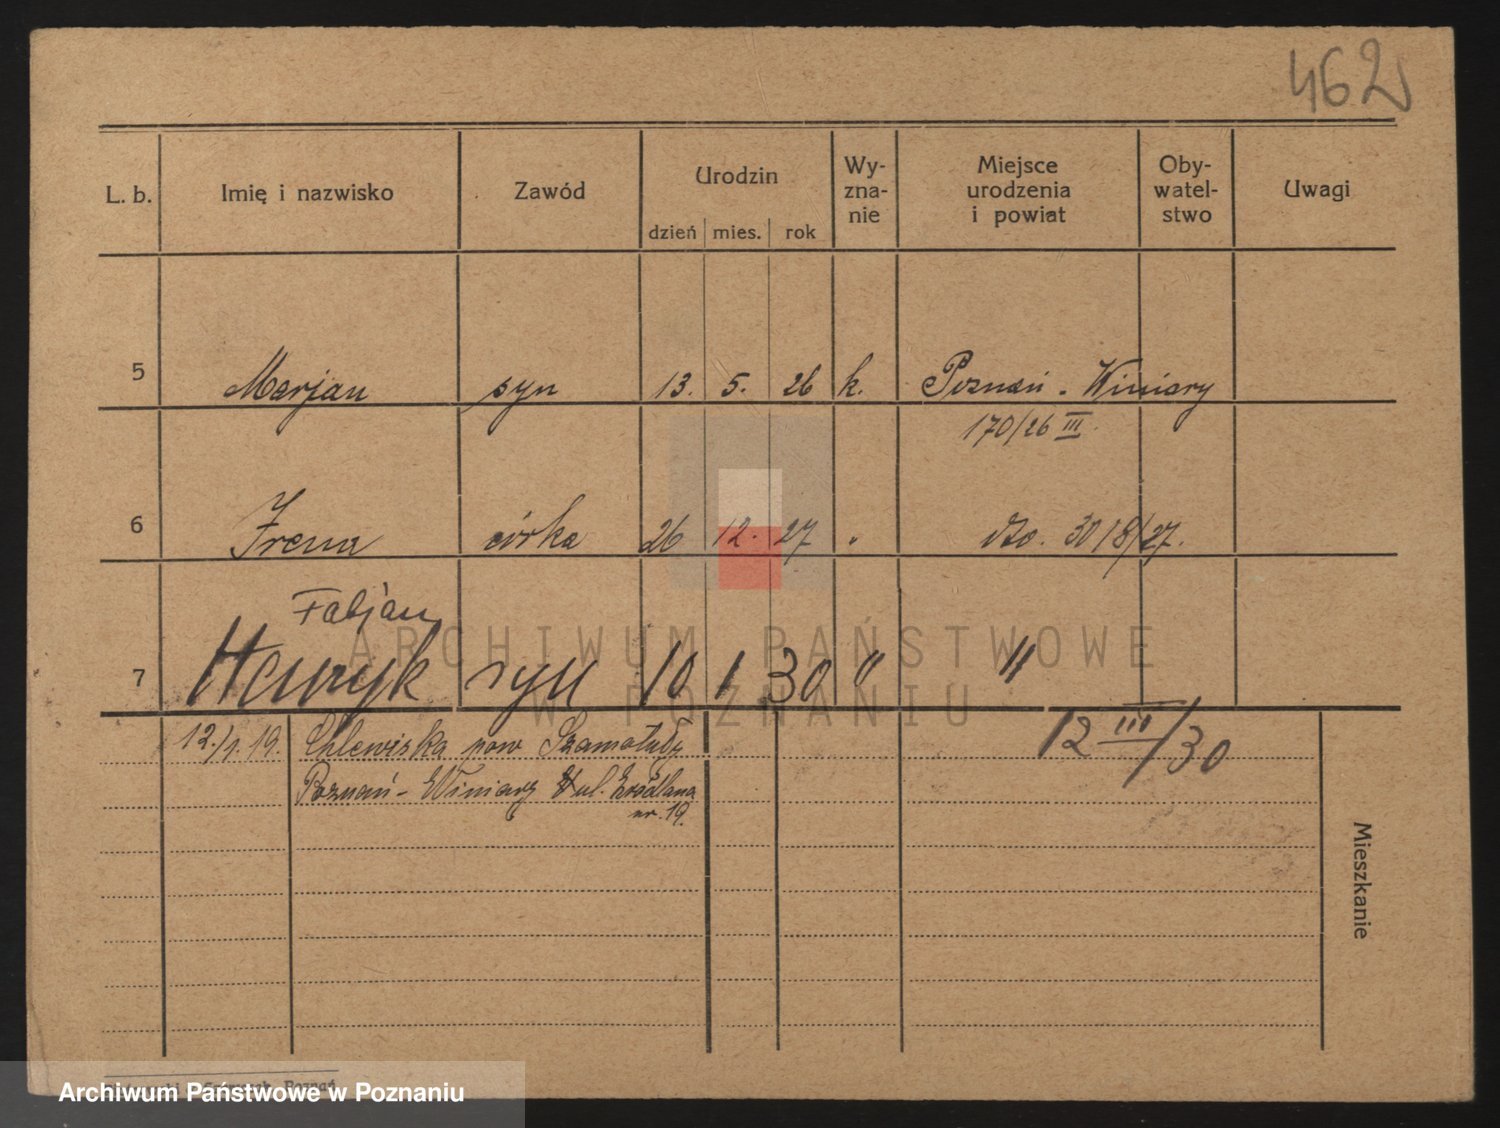 462
L. b. Imię i nazwisko Zawód Urodzin dzień mies. rok Wy-zna-nie Miejsce urodzenia i powiat Oby-watel-stwo Uwagi
5 Marjan syn 13. 5. 26 k. Poznań - Winiary
170/26 III.
6 Irena córka 26 12. 27 " dto. 3018/27.
Fabjan
7 Henryk syn 10 1 30 " "
12./1. 19. Chlewiska pow Szamotuły 12 III/30
Poznań - Winiary ul. Źródlana
nr. 19.
Mieszkanie
ARCHIWUM PAŃSTWOWE
W POZNANIU
Poznań
Archiwum Państwowe w Poznaniu